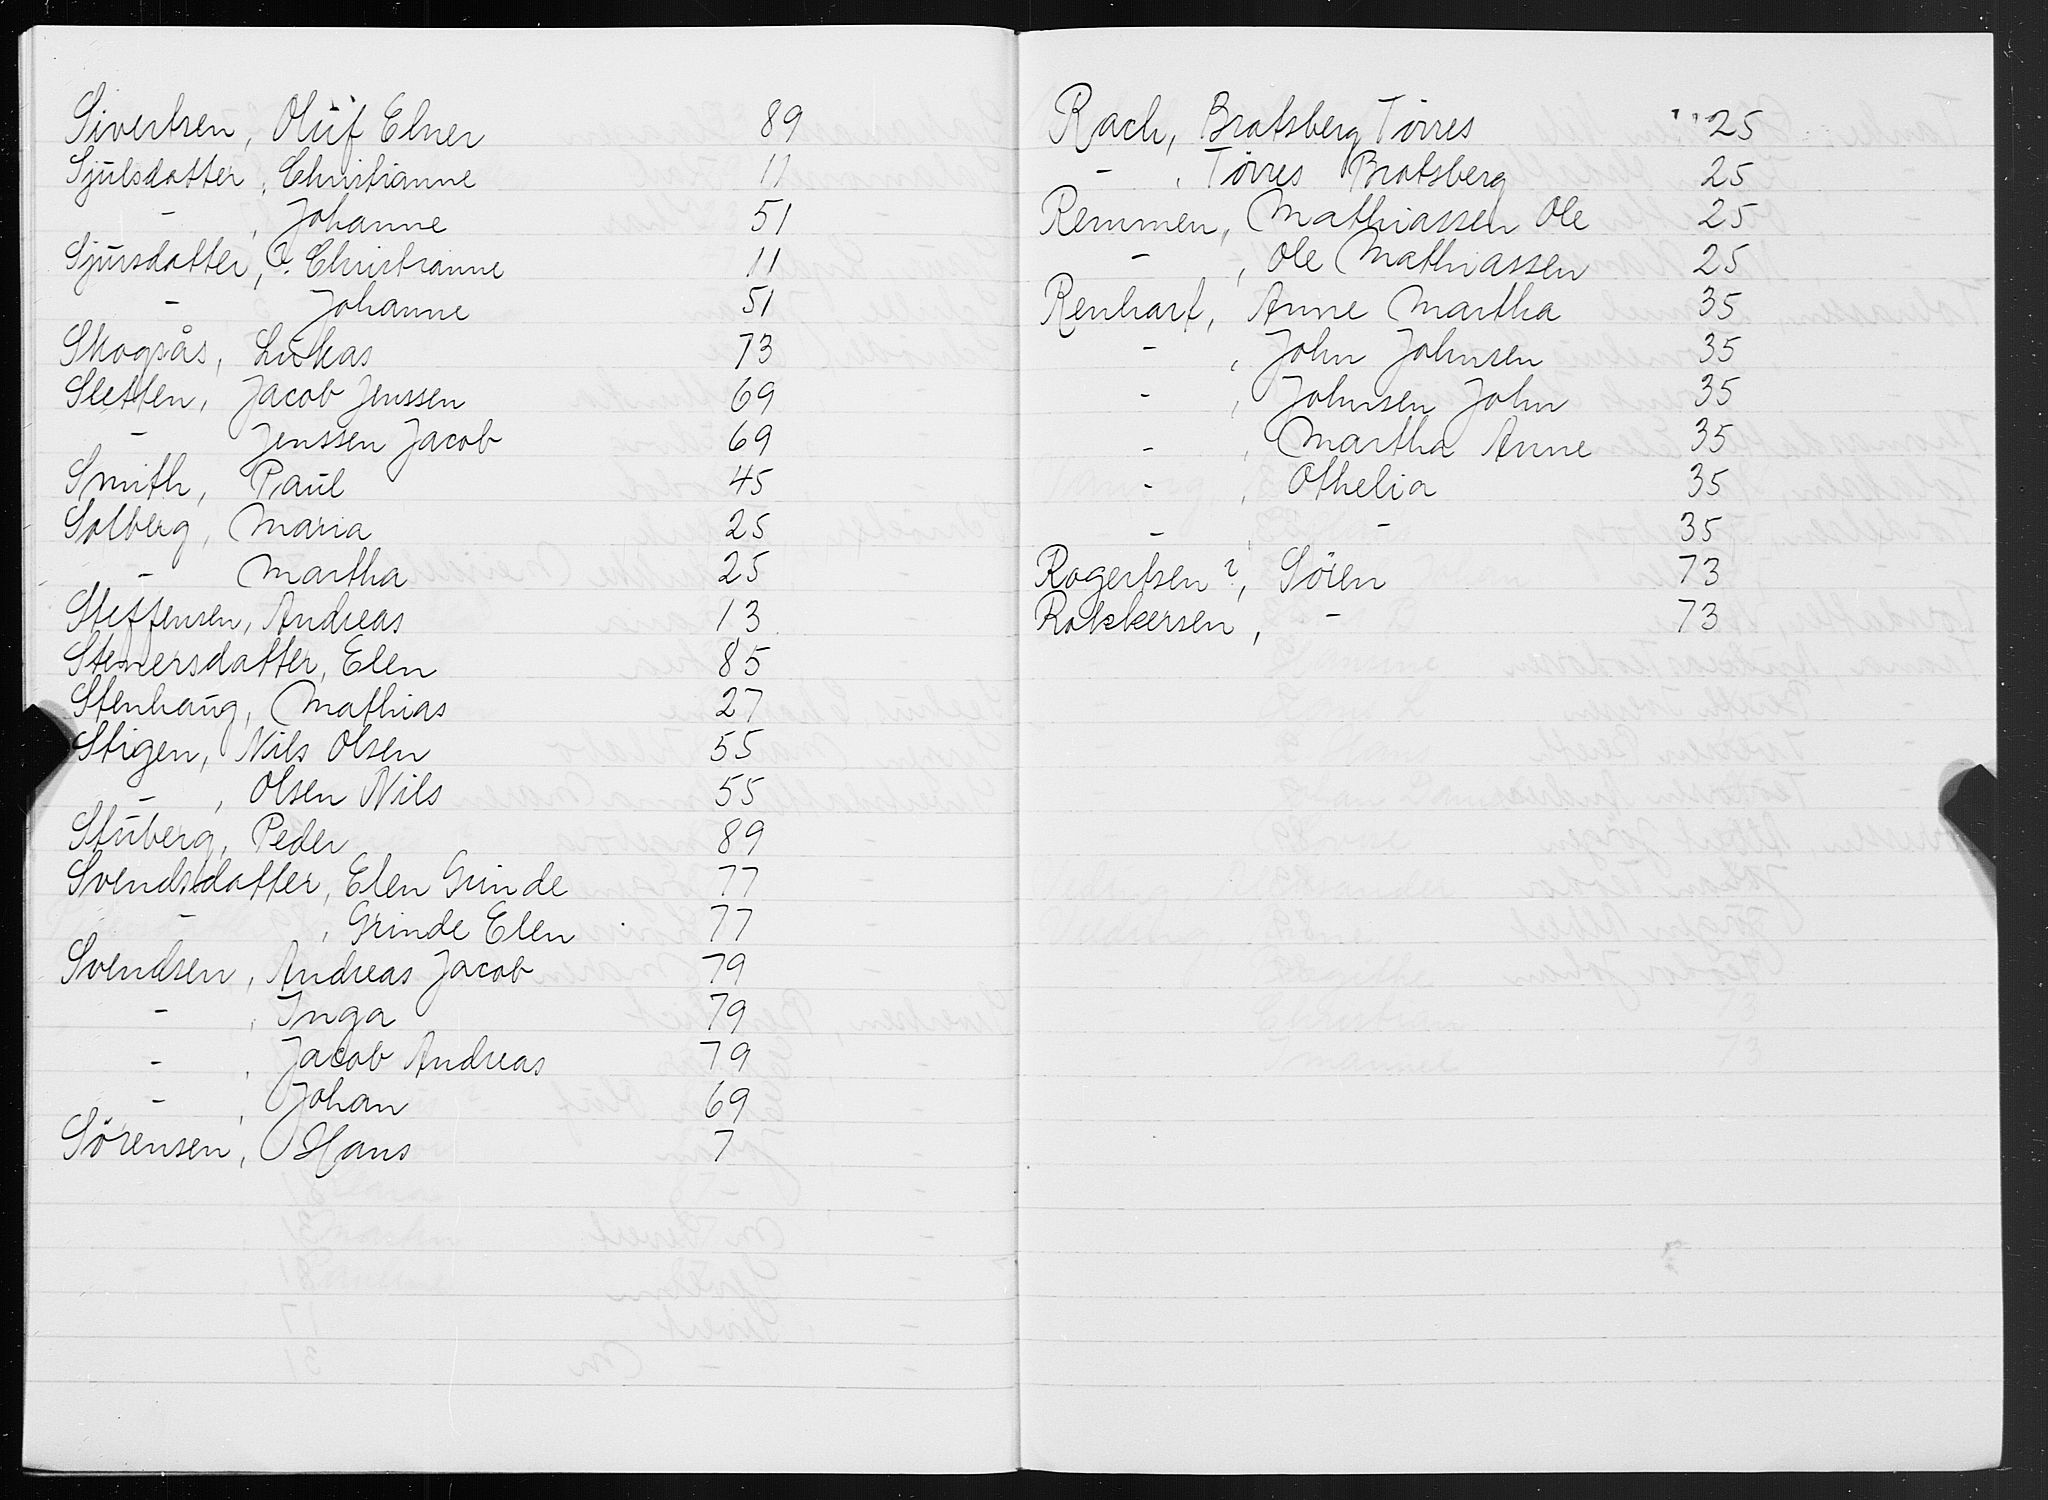 Sivertsen, Oluf Elner 89
Sjulsdatter, Christianne 11
- , Johanne 51
Sjursdatter, ?. Christianne 11
- Johanne 51
Skogsås, Lukas 73
Sletten, Jacob Jenssen 69
- Jenssen Jacob 69
Smith, Paul 45
Solberg, Maria 25
- Martha 25
Steffensen, Andreas 13
Stenersdatter, Elen 85
Stenhaug, Mathias 27
Stigen, Nils Olsen 55
- , Olsen Nils 55
Stuberg, Peder 89
Svendsdatter, Elen Grinde 77
- , Grinde Elen 77
Svendsen, Andreas Jacob 79
- , Inga 79
- , Jacob Andreas 79
- , Johan 69
Sörensen, Hans 7
Rach, Bratsberg Törres 25
- , Törres Bratsberg 25
Remmen, Mathiassen Ole 25
- , Ole Mathiassen 25
Renhart, Anne Martha 35
- , John Johnsen 35
- , Johnsen John 35
- , Martha Anne 35
- , Othelia 35
- , - 35
Rogertsen ?, Sören 73
Rokkersen, - 73